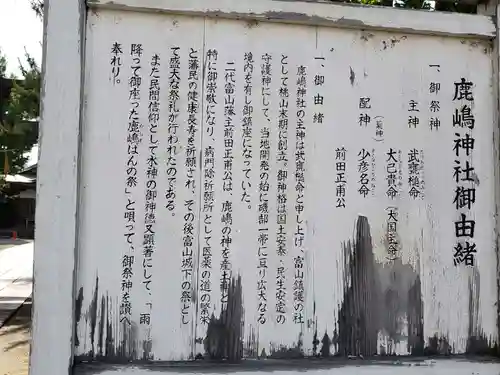 鹿嶋神社御由緒
一、御祭神
主神 武甕槌命
大己貴命（大国主命）
配神 少彦名命
（長神）
前田正甫公
一、御由緒
鹿嶋神社の主神は武甕槌命と申し上げ、富山鎮護の社
として桃山末期に創立。御神格は国土安泰・民生安定の
守護神にして、当地開発の始に磯部一帯に亘り広大なる
境内を有し御鎮座になっていた。
二代富山藩主前田正甫公は、鹿嶋の神を産土神と
特に御崇敬になり、病門除祈願所として医薬の道の繁栄
と藩民の健康長寿を祈願され、その後富山城下の祭とし
て盛大な祭礼が行われたのである。
また民間信仰として水神の御神徳又顕著にして、「雨
降って御座った鹿嶋はんの祭」と唄って、御祭神を讃へ
奉れり。